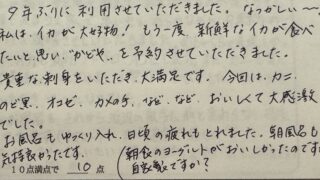 9年ぶりに利用させていただきました。なつかしい〜。
私は、イカが大好物! もう一度、新鮮なイカが食べ
たいと思い、"かどや"を予約させていただきました。
貴重な刺身をいただき、大満足です。今回は、カニ、
のど黒、オコゼ、カメの手、など、など、おいしくて大感激
でした。
お風呂もゆっくり入れ、日頃の疲れもとれました。朝風呂も
気持良かったです。
10点満点で 10 点
(朝食のヨーグルトがおいしかったのですが
自家製ですか?